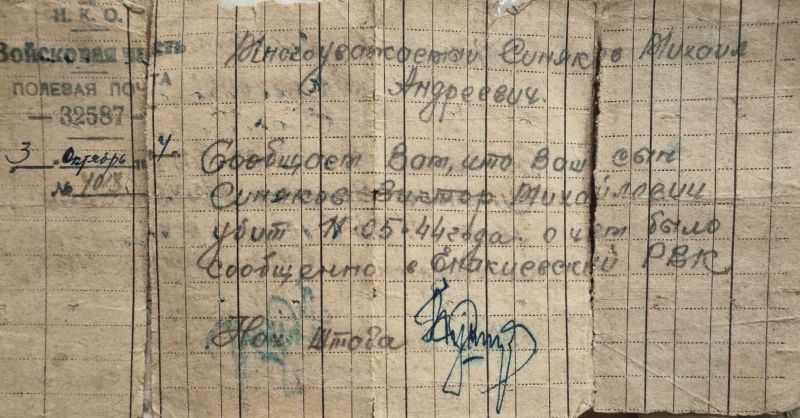 Н. К. О.
Войсковая часть
ПОЛЕВАЯ ПОЧТА
— 32587 —
3 Октябрь
№
Многоуважаемый Синяков Михаил
Андреевич.
Сообщаем Вам, что Ваш сын
Синяков Виктор Михайлович
убит 11.05.44 года. о чем было
сообщенно в Енакиевский РВК
Нач Штаба